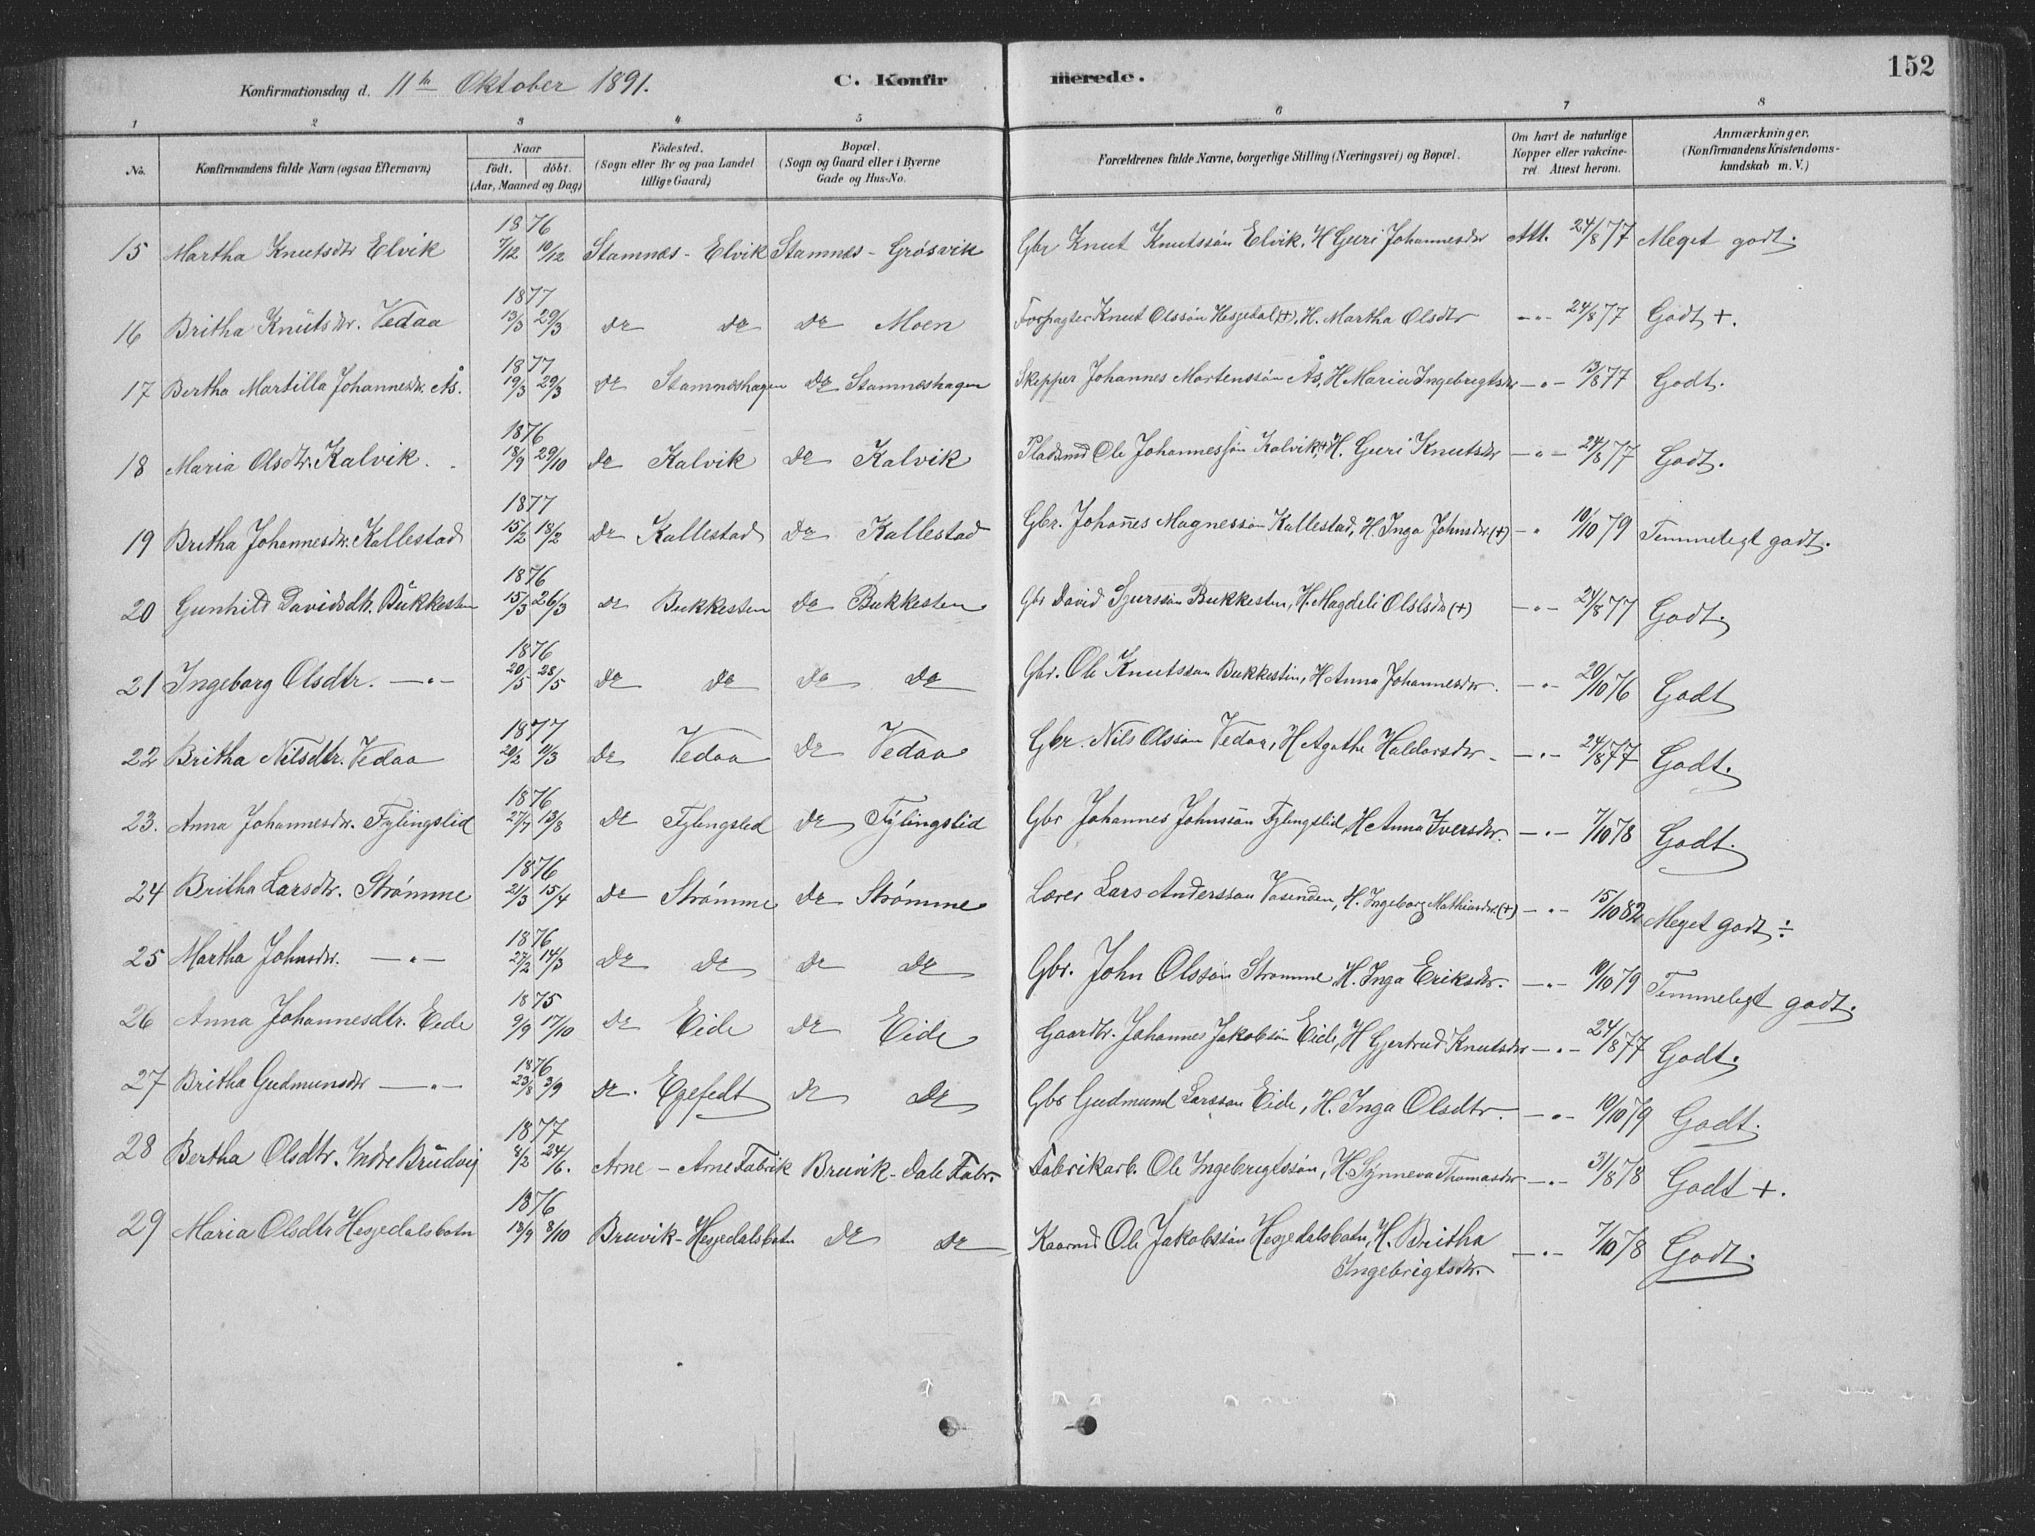 152
Konfirmationsdag d. 11te Oktober 1891. C. Konfirmerede.
1 2 3 4 5 6 7 8
No. Konfirmandens fulde Navn (ogsaa Efternavn) Naar födt. döbt. (Aar, Maaned og Dag) Födested. (Sogn eller By og paa Landet tillige Gaard) Bopæl. (Sogn og Gaard eller i Byerne Gade og Hus-No. Forældrenes fulde Navne, borgerlige Stilling (Næringsvei) og Bopæl. Om havt de naturlige Kopper eller vakcineret. Attest herom. Anmærkninger. (Konfirmandens Kristendomskundskab m. V.)
15 Martha Knutsdtr Elvik 1876 7/12 10/12 Stamnæs - Elvik Stamnæs - Grøsvik Gbr Knut Knutssøn Elvik, H Guri Johannesdtr Att. 24/8 77 Meget godt.
16 Britha Knutsdtr. Vedaa 1877 13/3 29/3 do do do Moen Forpagter Knut Olssøn Hesjedal (+), H. Martha Olsdtr -"- 24/8 77 Godt +.
17 Bertha Martilla Johannesdtr. Ås. 1877 19/3 29/3 do Stamneshagen do Stamneshagen Skipper Johannes Mortenssøn Ås, H Maria Ingebrigtsdtr -"- 13/8 77 Godt.
18 Maria Olsdtr. Kalvik. 1876 18/9 29/10 do Kalvik do Kalvik Pladsmd Ole Johannessøn Kalvik, H. Guri Knutsdtr -"- 24/8 77 Godt.
19 Britha Johannesdtr. Kallestad 1877 15/2 18/2 do Kallestad do Kallestad Gbr. Johañes Magnessøn Kallestad, H. Inga Johnsdtr (+) -"- 10/10 79 Temmeligt godt.
20 Gunhild Davidsdtr. Bukkesten 1876 15/3 26/3 do Bukkesten do Bukkesten Gbr David Sjurssøn Bukkesten, H. Magdeli Olsdtr (+) -"- 24/8 77 Godt.
21 Ingeborg Olsdtr. -"- 1876 20/5 28/5 do do do do Gbr. Ole Knutssøn Bukkesten, H Anna Johannesdtr. -"- 20/10 76 Godt
22 Britha Nilsdtr. Vedaa 1877 20/2 11/3 do Vedaa do Vedaa Gbr. Nils Olssøn Vedaa, H Agathe Haldorsdtr -"- 24/8 77 Godt.
23. Anna Johannesdtr. Fylingslid 1876 27/7 13/8 do Fylingslid do Fylingslid Gbr Johannes Johnssøn Fylingslid, H Anna Iversdtr. -"- 7/10 78 Godt.
24 Britha Larsdtr. Strømme 1876 21/3 15/4 do Strømme do Strømme Lærer Lars Anderssøn Vasenden, H. Ingeborg Mathiasdtr. (+) -"- 15/10 82 Meget godt ÷
25 Martha Johnsdtr. -"- 1876 27/2 14/3 do do do do Gbr. John Olssøn Strømme H. Inga Eriksdtr. -"- 10/10 79 Temmeligt godt.
26 Anna Johannesdtr. Eide 1875 9/9 17/10 do Eide do Eide Gaardbr. Johannes Jakobsøn Eide, H Gjertrud Knutsdtr -"- 24/8 77 Godt.
27 Britha Gudmunsdtr -"- 1876 23/8 3/9 do. Egefedt do do Gbr Gudmund Larssøn Eide, H. Inga Olsdtr. -"- 10/10 79 Godt.
28 Bertha Olsdtr. Indre Brudvig 1877 8/2 24/6. Arne - Arne Fabrik Bruvik - Dale Fabr. Fabrikarb. Ole Ingebrigtssøn, H. Synneva Thomasdtr -"- 31/8 78 Godt +.
29 Maria Olsdtr Hesjedalsbotn 1876 13/9 8/10 Bruvik - Hesjedalsbotn do do Kaarmd Ole Jakobssøn Hesjedalsbotn, H. Britha Ingebrigtsdtr. -"- 7/10 78 Godt.